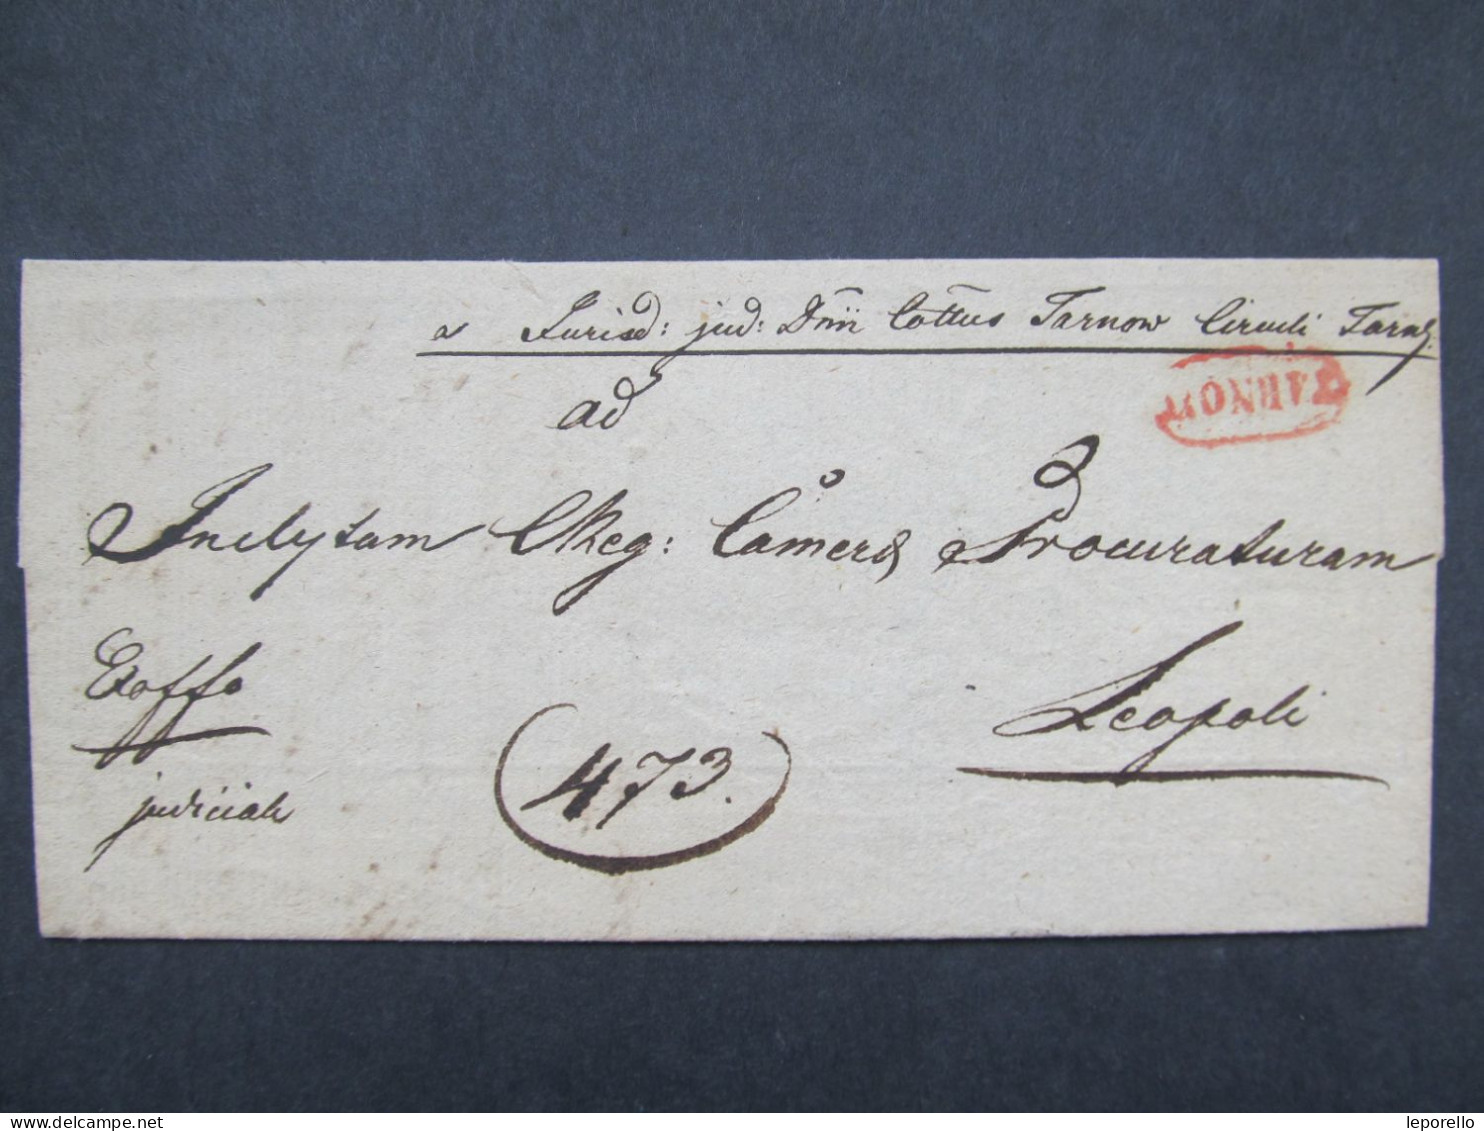 a Jurisd: jud: Dnii Cottus Tarnow Circuli Tarn
TARNOW
ad
Inclytam CReg: Camera Procuraturam
Exoffo
judiciale
473.
Leopoli
leporello